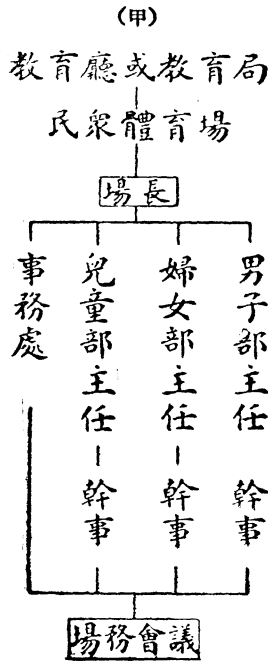 (甲)
教育廳或教育局
民眾體育場
場長
男子部主任
幹事
婦女部主任
幹事
兒童部主任
幹事
事務處
場務會議